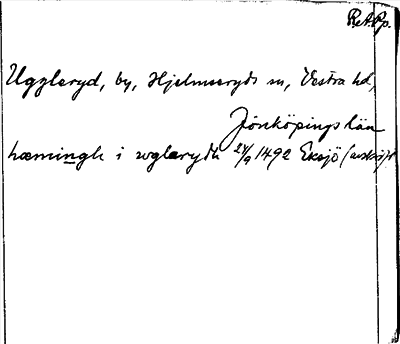 R.A. Pp.
Uggleryd, by, Hjelmseryds sn, Västra hd,
Jönköpings län
hæmingh i wglærydh 24/9 1492 Eksjö (avskrift)